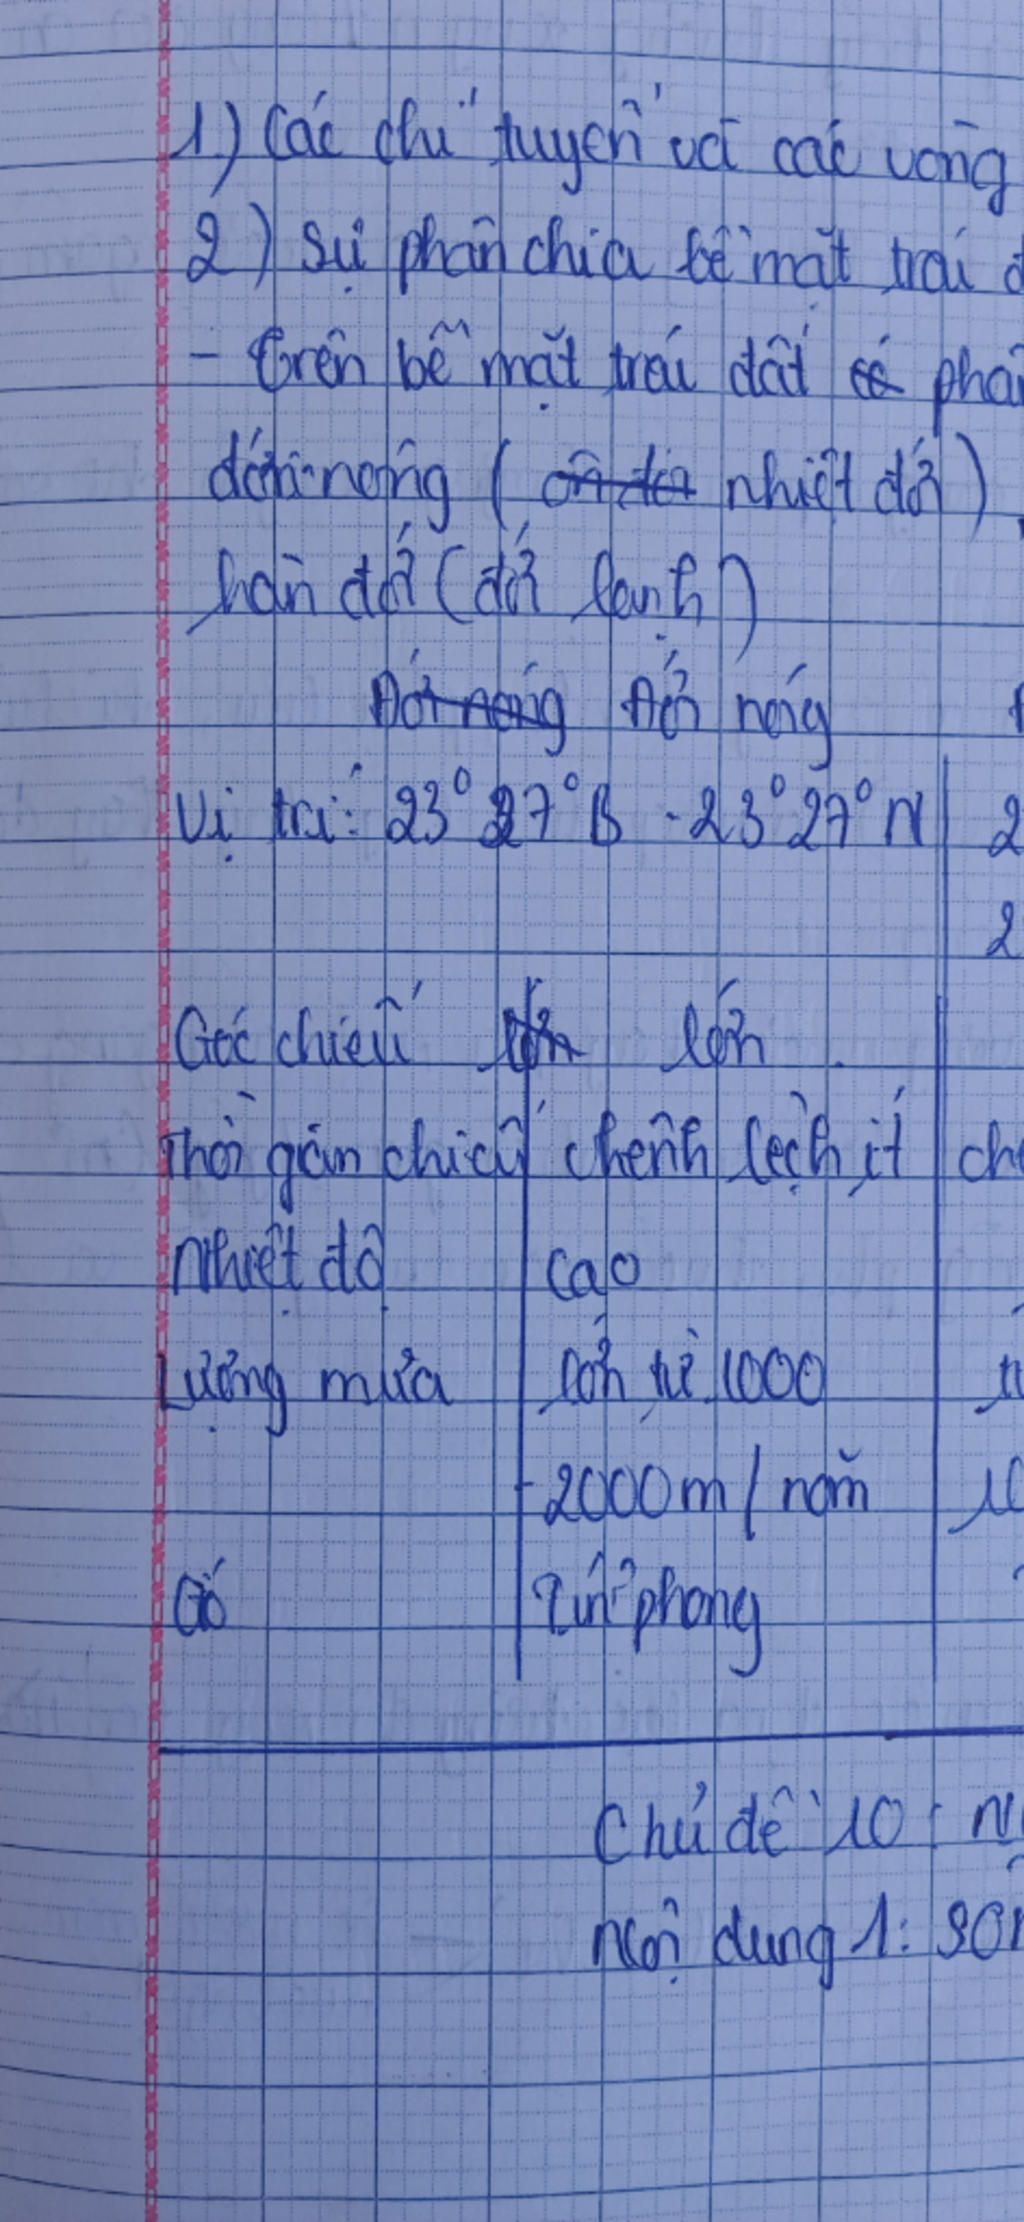 1) Các chí tuyến và các vòng
2) Sự phân chia bề mặt trái đ
- Trên bề mặt trái đất có phân
đới nóng ( ôn đới nhiệt đới )
hàn đới (đới lạnh)
Đới nóng Đới nóng
Vị trí: 23° 27° B - 23° 27° N 2
2
Góc chiếu lớn lớn
Thời gian chiếu chênh lệch ít ch
Nhiệt độ cao
Lượng mưa lớn từ 1000 t
- 2000m / năm 10
Gió Tín phong
Chủ đề 10: N
Nội dung 1: SÔN